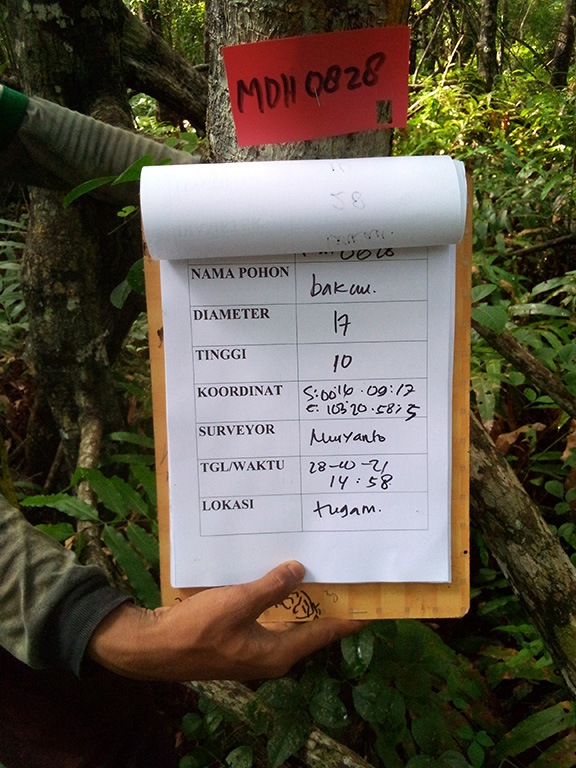 MDH 0828
28
0828
NAMA POHON bakau.
DIAMETER 17
TINGGI 10
KOORDINAT S: 00:16 . 09:17
E: 103:20 . 58:5
SURVEYOR Muryanto
TGL/WAKTU 28-10-21
14:58
LOKASI tugam.